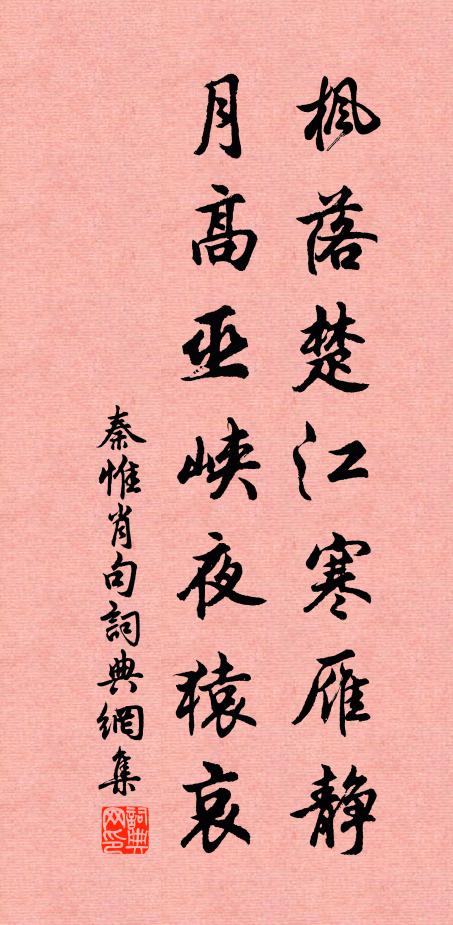 枫落楚江寒雁静
月高巫峡夜猿哀
秦惟肖句詞典網集
詞典网印